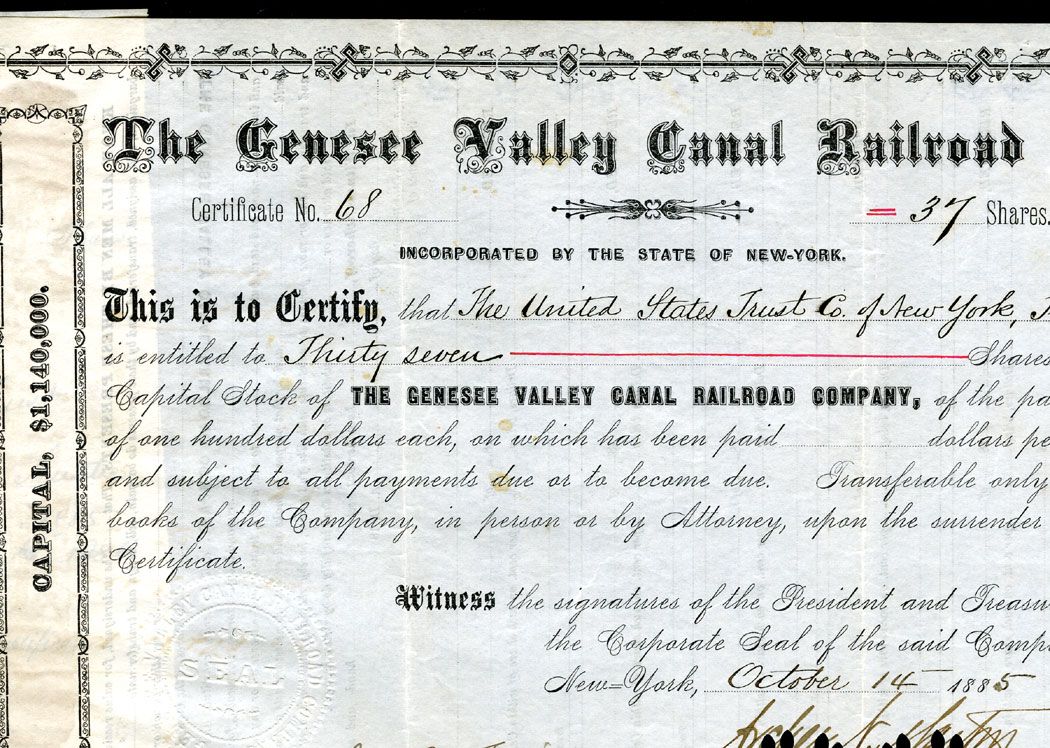 The Genesee Valley Canal Railroad
Certificate No. 68
= 37 Shares.
INCORPORATED BY THE STATE OF NEW-YORK.
This is to Certify, that The United States Trust Co. of New York,
is entitled to Thirty seven Shares
Capital Stock of THE GENESEE VALLEY CANAL RAILROAD COMPANY, of the pa
of one hundred dollars each, on which has been paid dollars pe
and subject to all payments due or to become due. Transferable only
books of the Company, in person or by Attorney, upon the surrender
Certificate.
Witness the signatures of the President and Treasu
the Corporate Seal of the said Comp
New=York, October 14 1885
CAPITAL, $1,140,000.
SEAL